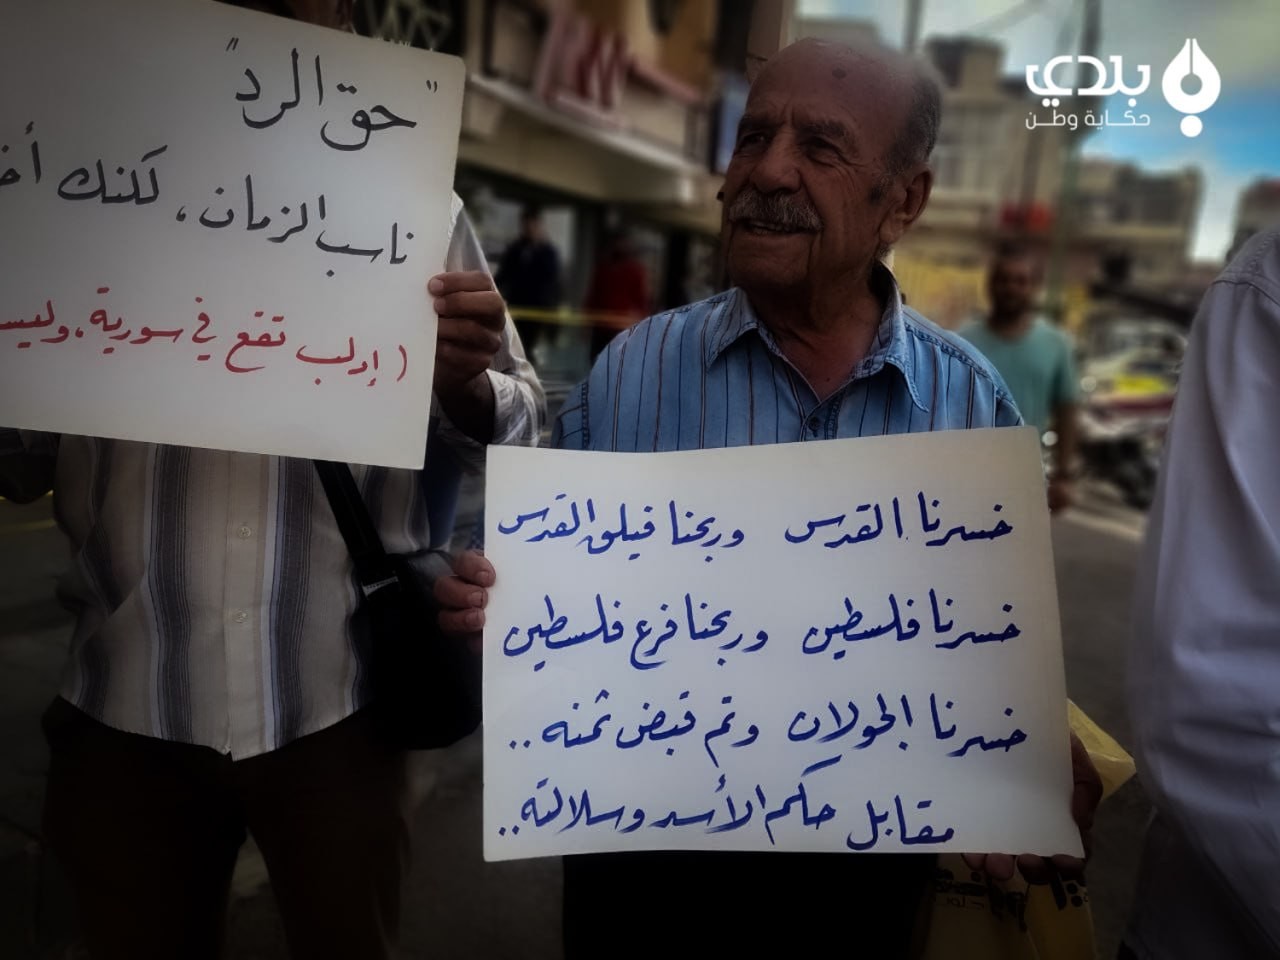 بلدي
حكاية وطن
"حق الرد"
ناسب الزمان، لكنك
(إدلب تقع في سورية، وليس
خسرنا القدس وربحنا فيلق القدس
خسرنا فلسطين وربحنا فرع فلسطين
خسرنا الجولان وتم قبض ثمنه..
مقابل حكم الأسد وسلالته..